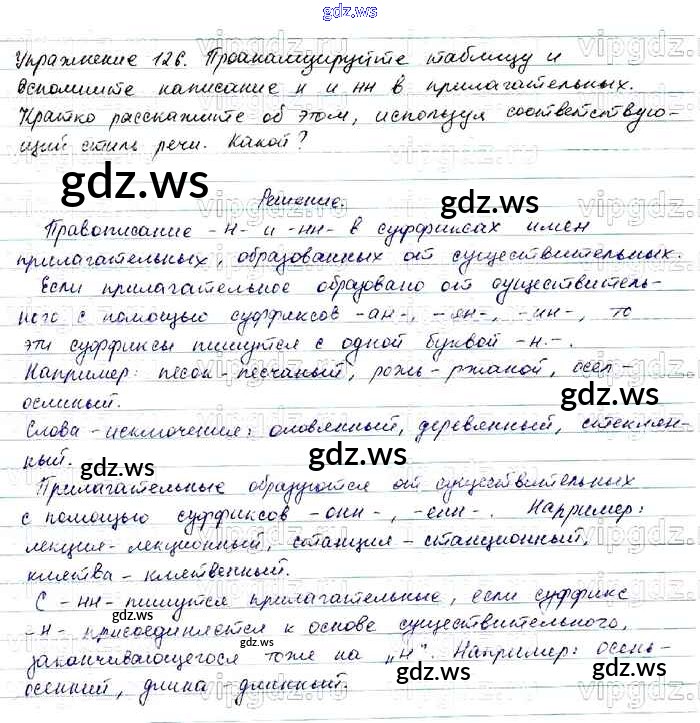 gdz.ws
Упражнение 126. Проанализируйте таблицу и
вспомните написание н и нн в прилагательных.
Кратко расскажите об этом, используя соответствую-
щий стиль речи. Какой?
gdz.ws
Решение.
Правописание -н- и -нн- в суффиксах имен
прилагательных, образованных от существительных.
Если прилагательное образовано от существитель-
ного с помощью суффиксов -ан-, -ян-, -ин-, то
эти суффиксы пишутся с одной буквой -н-.
Например: песок - песчаный, рожь - ржаной, осел -
gdz.ws
ослиный.
Слова - исключения: оловянный, деревянный, стеклян-
ный.
gdz.ws gdz.ws
Прилагательные образуются от существительных
с помощью суффиксов -онн-, -енн-. Например:
лекция - лекционный, станция - станционный,
клятва - клятвенный.
gdz.ws
С -нн- пишутся прилагательные, если суффикс
gdz.ws
-н- присоединяется к основе существительного,
gdz.ws gdz.ws
заканчивающегося тоже на „н". Например: осень -
осенний, длина - длинный.
gdz.ws